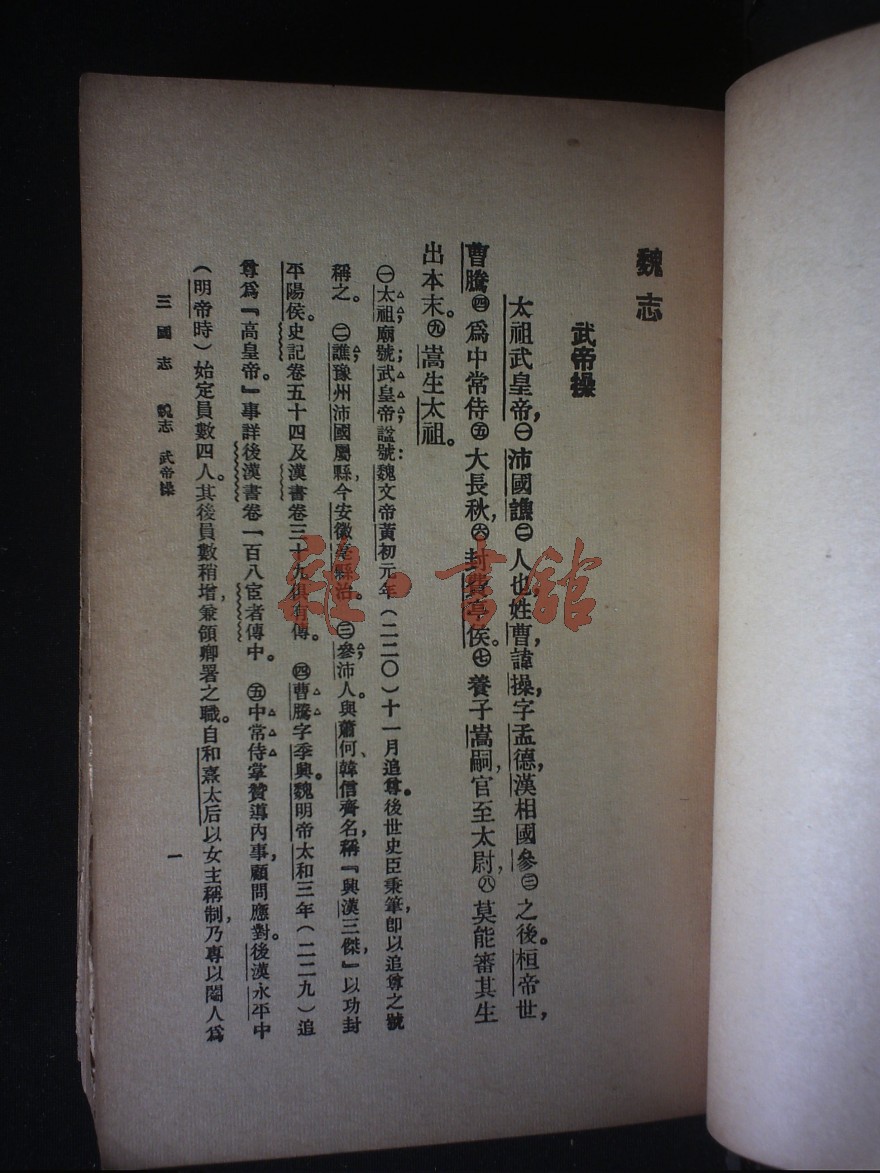 魏志
武帝操
太祖武皇帝，㊀沛國譙㊁人也，姓曹，諱操，字孟德，漢相國參㊂之後。桓帝世，
曹騰㊃爲中常侍㊄大長秋，㊅封費亭侯。㊆養子嵩嗣，官至太尉，㊇莫能審其生
出本末。㊈嵩生太祖。
㊀太祖，廟號；武皇帝，諡號：魏文帝黃初元年（二二〇）十一月追尊。後世史臣秉筆，卽以追尊之號
稱之。㊁譙，豫州沛國屬縣，今安徽亳縣治。㊂參，沛人。與蕭何、韓信齊名，稱『興漢三傑，』以功封
平陽侯。史記卷五十四及漢書卷三十九俱有傳。㊃曹騰字季興。魏明帝太和三年（二二九）追
尊爲『高皇帝。』事詳後漢書卷一百八宦者傳中。㊄中常侍掌贊導內事，顧問應對。後漢永平中
（明帝時）始定員數四人。其後員數稍增，兼領卿署之職。自和熹太后以女主稱制，乃專以閹人爲
三國志 魏志 武帝操
一
雜·書館